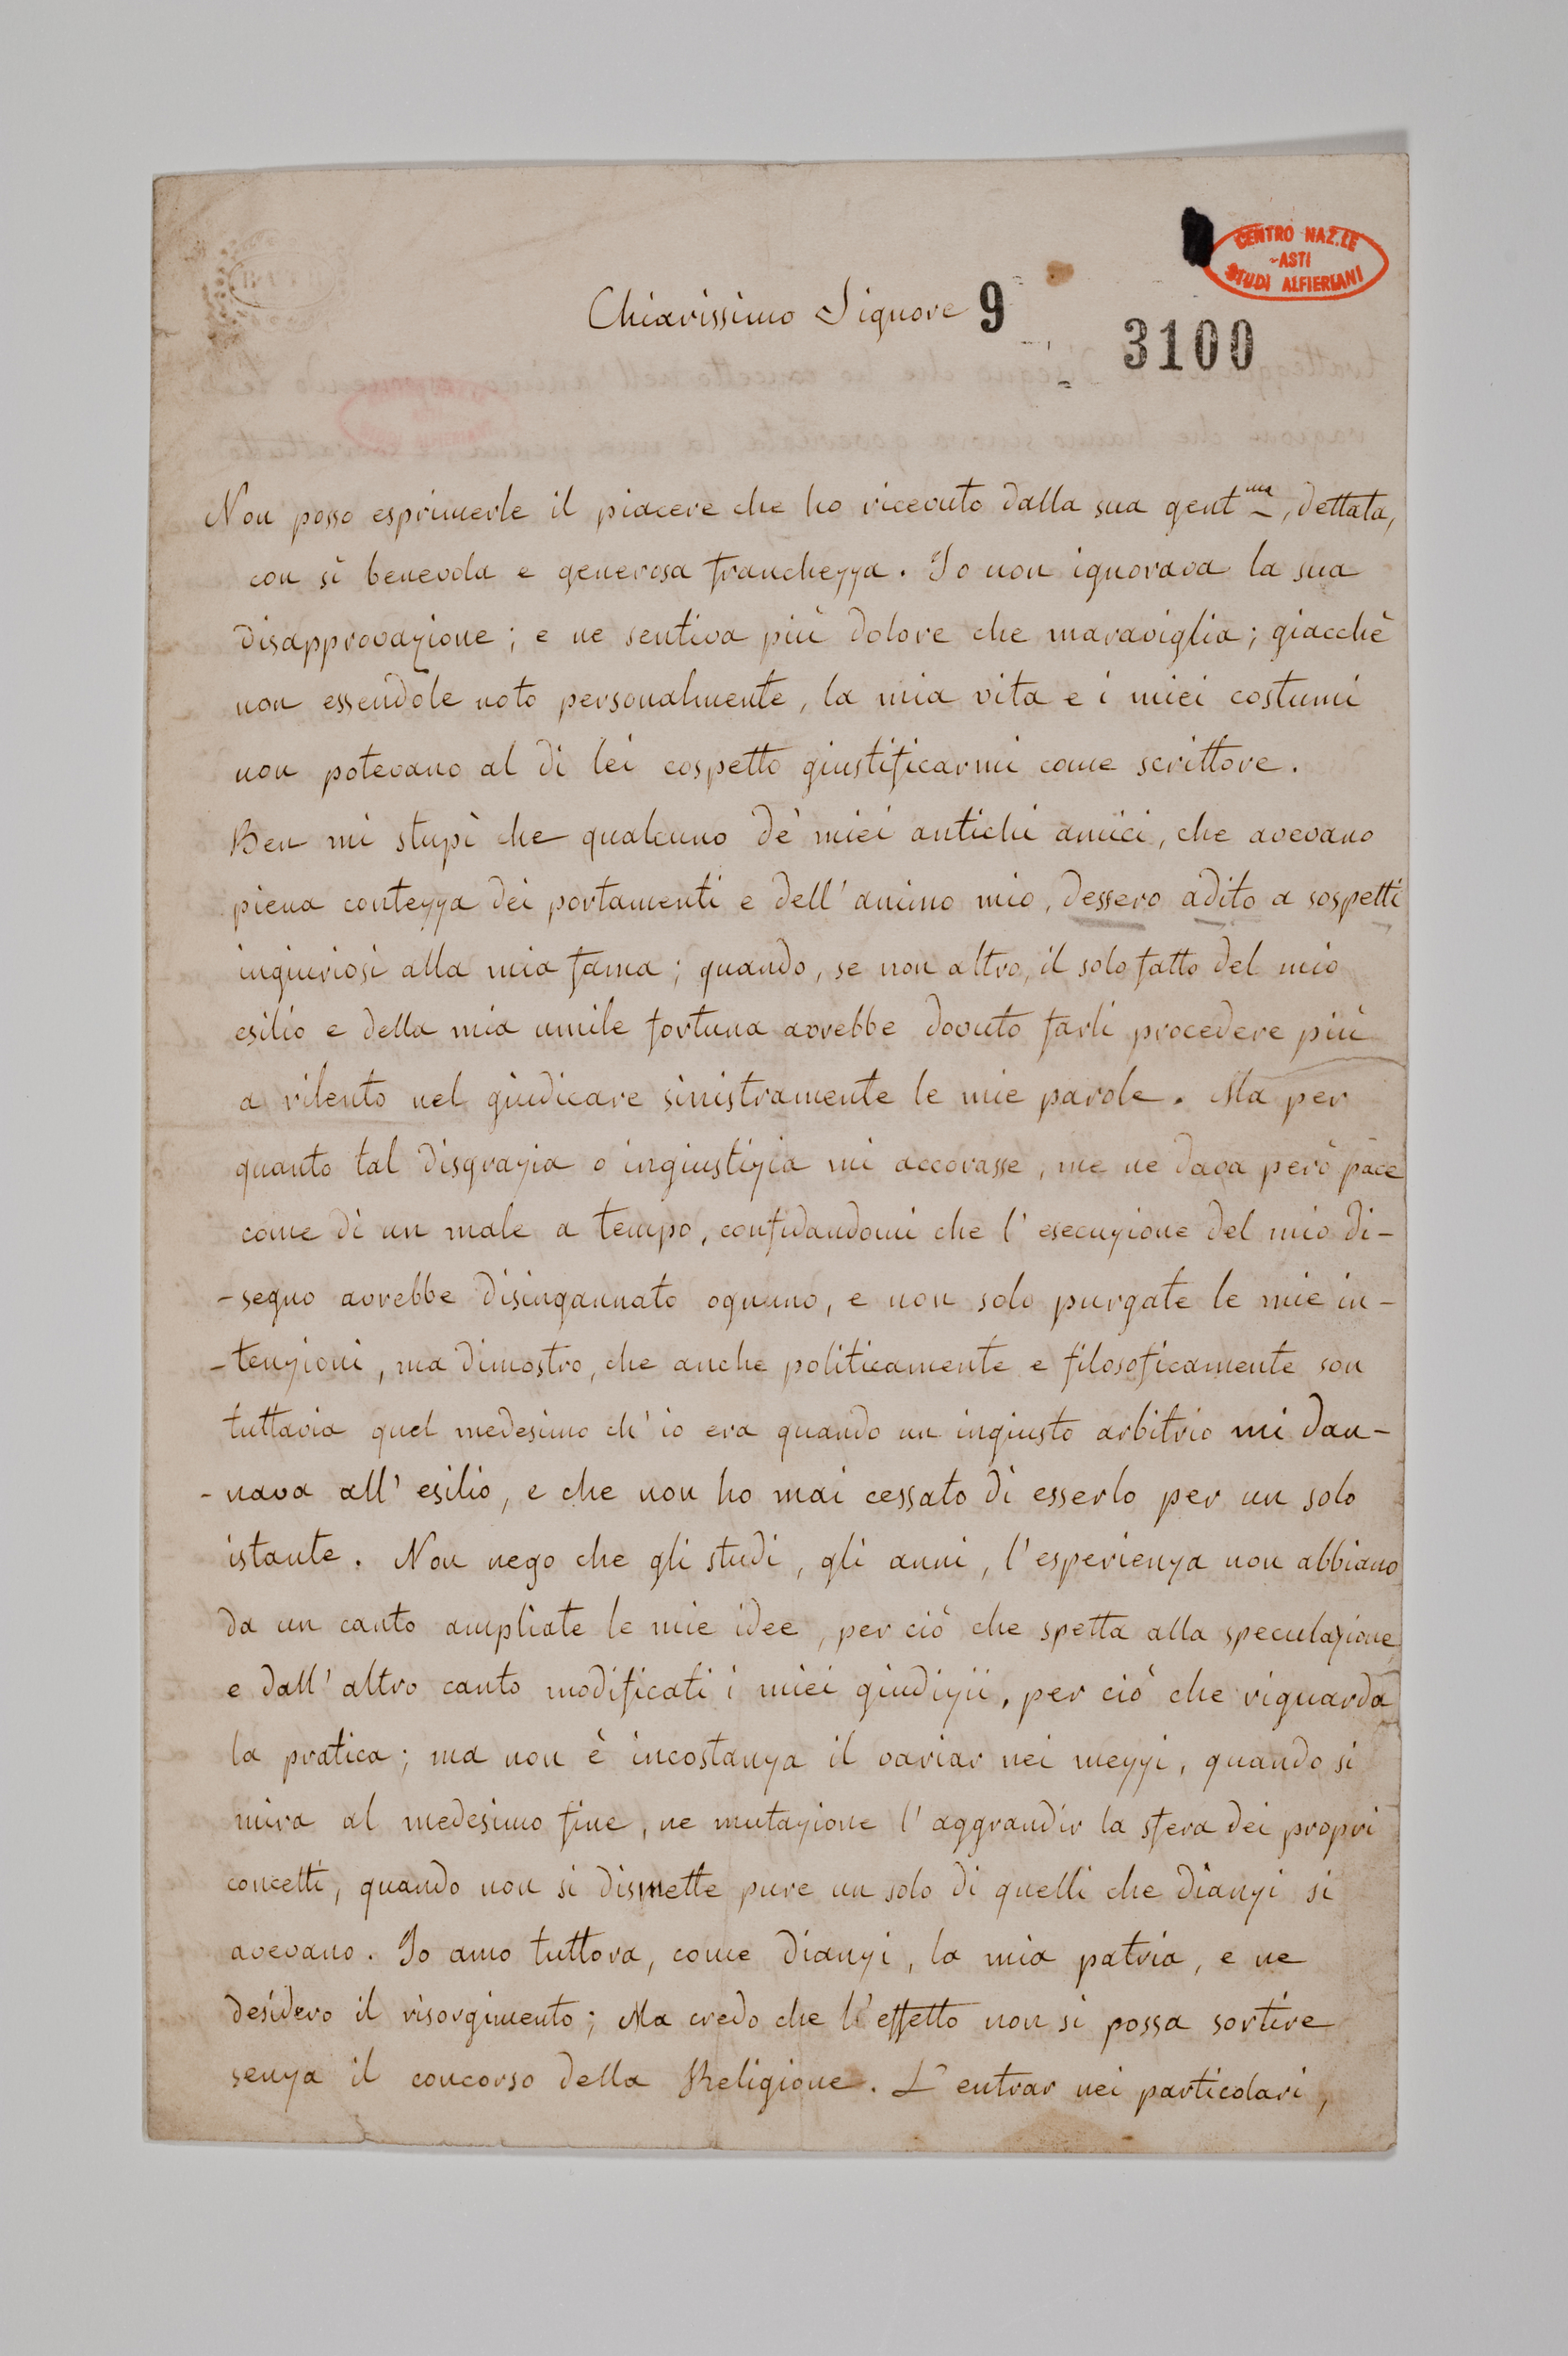 CENTRO NAZ.LE
- ASTI
STUDI ALFIERIANI
Chiarissimo Signore 9
3100
Non posso esprimerle il piacere che ho ricevuto dalla sua gentma, dettata,
con sì benevola e generosa franchezza. Io non ignorava la sua
disapprovazione; e ne sentiva più dolore che maraviglia; giacchè
non essendole noto personalmente, la mia vita e i miei costumi
non potevano al di lei cospetto giustificarmi come scrittore.
Ben mi stupì che qualcuno de' miei antichi amici, che avevano
piena contezza dei portamenti e dell'animo mio, dessero adito a sospetti
ingiuriosi alla mia fama; quando, se non altro, il solo fatto del mio
esilio e della mia umile fortuna avrebbe dovuto farli procedere più
a rilento nel giudicare sinistramente le mie parole. Ma per
quanto tal disgrazia o ingiustizia mi accorasse, me ne dava però pace
come di un male a tempo, confidandomi che l'esecuzione del mio di-
-segno avrebbe disingannato ognuno, e non solo purgate le mie in-
-tenzioni, ma dimostro, che anche politicamente e filosoficamente son
tuttavia quel medesimo ch'io era quando un ingiusto arbitrio mi dan-
-nava all'esilio, e che non ho mai cessato di esserlo per un solo
istante. Non nego che gli studi, gli anni, l'esperienza non abbiano
da un canto ampliate le mie idee, per ciò che spetta alla speculazione,
e dall'altro canto modificati i miei giudizii, per ciò che riguarda
la pratica; ma non è incostanza il variar nei mezzi, quando si
mira al medesimo fine, ne mutazione l'aggrandir la sfera dei propri
concetti, quando non si dismette pure un solo di quelli che dianzi si
avevano. Io amo tuttora, come dianzi, la mia patria, e ne
desidero il risorgimento; Ma credo che l'effetto non si possa sortire
senza il concorso della Religione. L'entrar nei particolari,